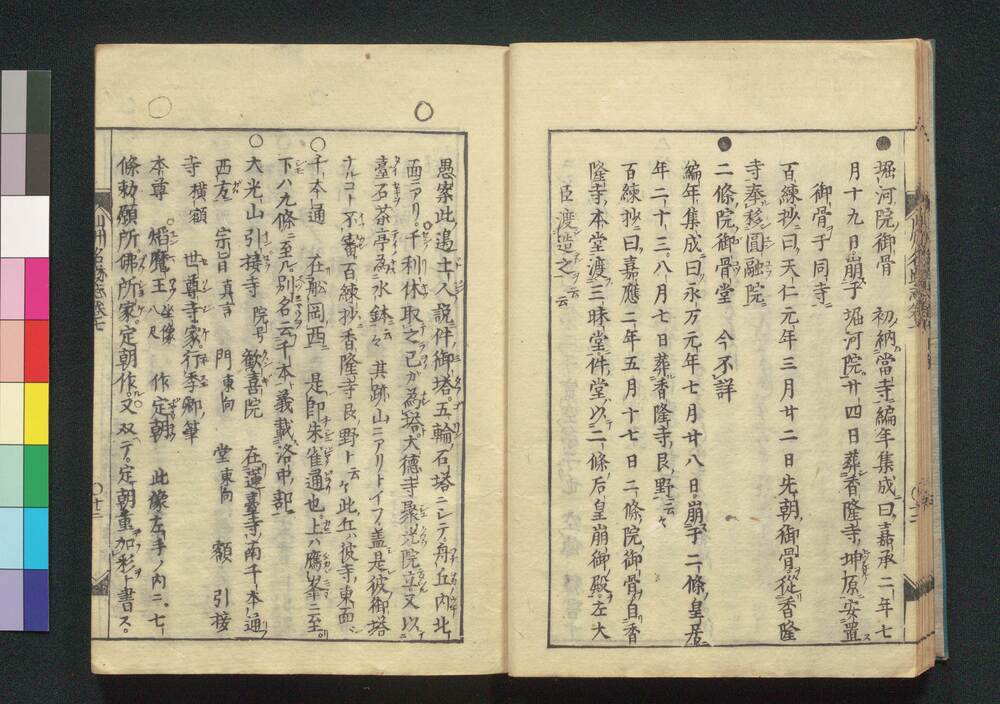 堀河院御骨 初納當寺編年集成ニ曰嘉承二年七
月十九日崩于堀河院廿四日葬香隆寺坤原安置
御骨于同寺
百練抄曰天仁元年三月廿二日先朝御骨從香隆
寺奉移圓融院
二條院御骨堂 今不詳
編年集成曰永万元年七月廿八日崩于二條皇居
年二十三八月七日葬香隆寺艮野云々
百練抄曰嘉應二年五月十七日二條院御骨自香
隆寺本堂渡三昧堂件堂以二條后皇崩御殿左大
臣渡造之云云
愚案此邉土人説件御塔五輪石塔ニシテ舟丘内北
面ニアリ千利休取之已カ為塔大德寺聚光院立又以
臺石茶亭為水鉢云々其跡山ニアリトイフ盖是彼御塔
ナルコト不審百練抄香隆寺艮野ト云々此丘ハ彼寺東面
千本通 在舩岡西 是即朱雀通也上ハ鷹峯ニ至
下ハ九條ニ至ル別名云千本義載洛中部
大光山引接寺 院号歓喜院 在蓮臺寺南千本通
西方 宗旨真言 門東向 堂東向 額 引接
寺横額 世尊寺家行季卿筆
本尊 焔魔王坐像八尺 作定朝 此像左手ノ内ニ七
條勅願所佛所家定朝作又双テ定朝重加彩ト書ス
山州名跡志巻七
〇十二